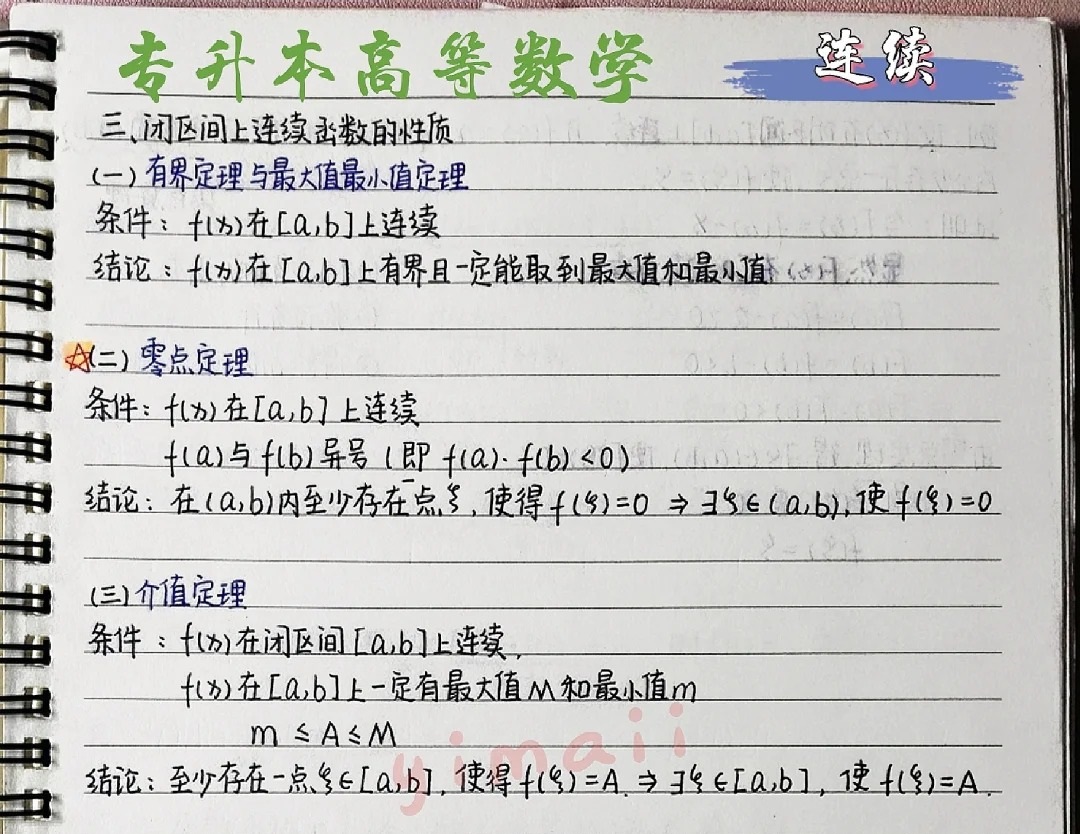 专升本高等数学
连续
三、闭区间上连续函数的性质
(一) 有界定理与最大值最小值定理
条件: f(x)在[a,b]上连续
结论: f(x)在[a,b]上有界且一定能取到最大值和最小值
☆(二) 零点定理
条件: f(x)在[a,b]上连续
f(a)与f(b)异号(即 f(a)·f(b)<0)
结论: 在(a,b)内至少存在一点ξ,使得f(ξ)=0 ⇒ ∃ξ∈(a,b),使f(ξ)=0
(三) 介值定理
条件: f(x)在闭区间[a,b]上连续,
f(x)在[a,b]上一定有最大值M和最小值m
m≤A≤M
结论: 至少存在一点ξ∈[a,b],使得f(ξ)=A. ⇒ ∃ξ∈[a,b],使f(ξ)=A.
yimaii